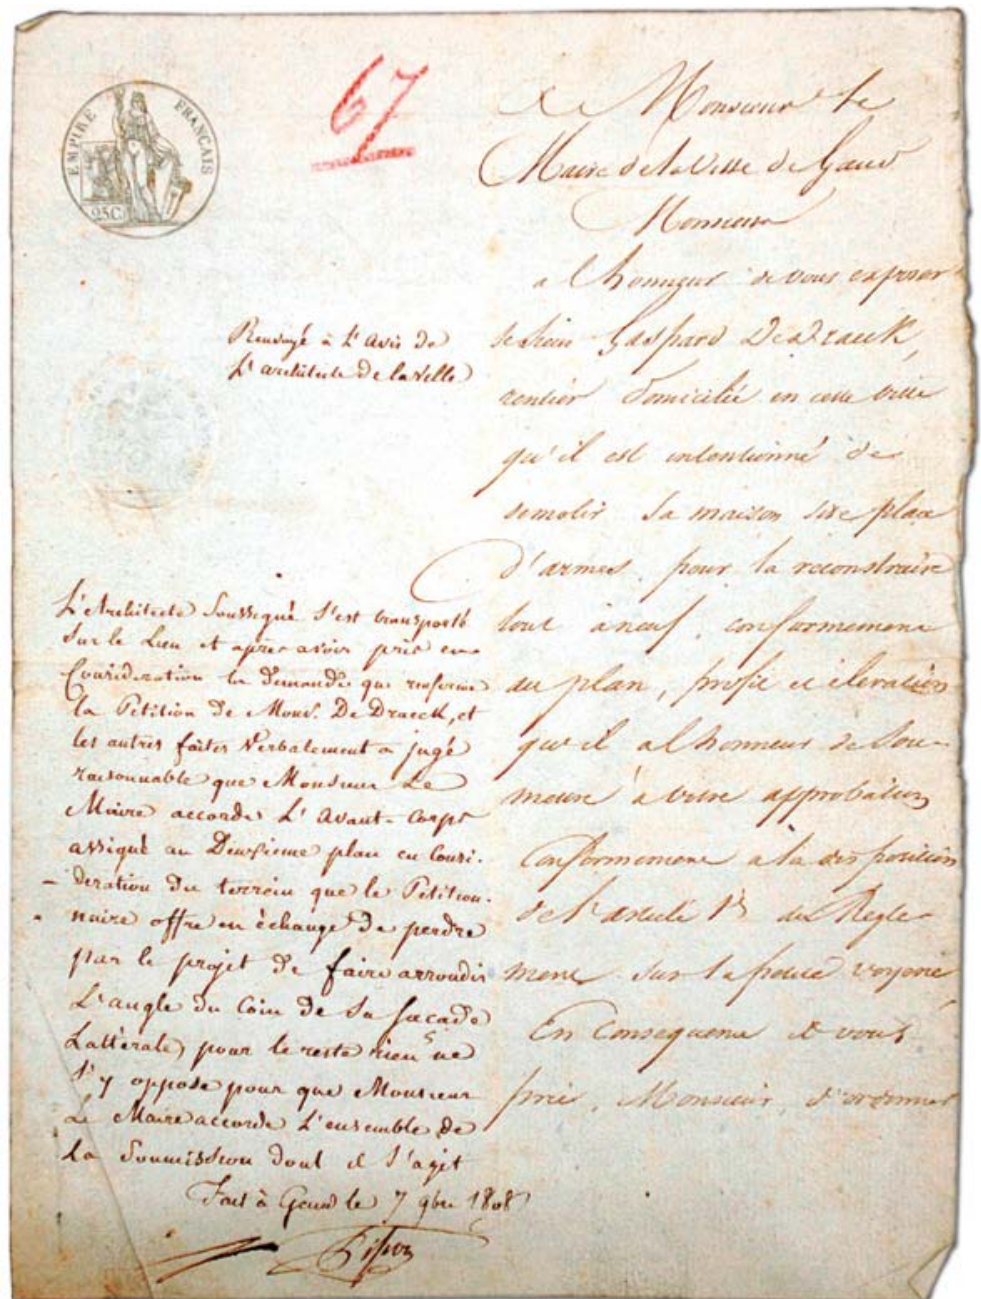 EMPIRE FRANÇAIS
25C.
67
A Monsieur le
Maire de la Ville de Gand
Monsieur
a l'honneur de vous exposer
le Sieur Gaspard De Draeck,
rentier domicilié en cette ville
qu'il est intentionné de
demolir sa maison sise place
d'armes, pour la reconstruire
tout àneuf, conformement
au plan, profil et élevation
qu'il a l'honneur de Sou-
mettre à votre approbation
Conformement a la disposition
de l'article 1er du Regle-
ment sur la petite voyerie,
En Consequence il vous
prie, Monsieur, d'ordonner
Renvoyé à L'Avis de
L'architecte de la Ville
L'Architecte Soussigné S'est transporté
Sur le Lieu et après avoir pris en
Consideration la demande que renferme
la Petition de Monsr. De Draeck, et
les autres faites Verbalement a jugé
raisonnable que Monsieur Le
Maire accorde L'Avant-Corps
assigné au Deuxieme plan en Consi-
deration du terrein que le Petition-
naire offre en échange de perdre
par le projet de faire arrondir
L'angle du Coin de Sa facade
Lattèrale, pour le reste rien ne
S'y oppose pour que Monsieur
Le Maire accorde L'ensemble de
La Soumission dont il S'agit
Fait à Gand le 7 9bre 1808